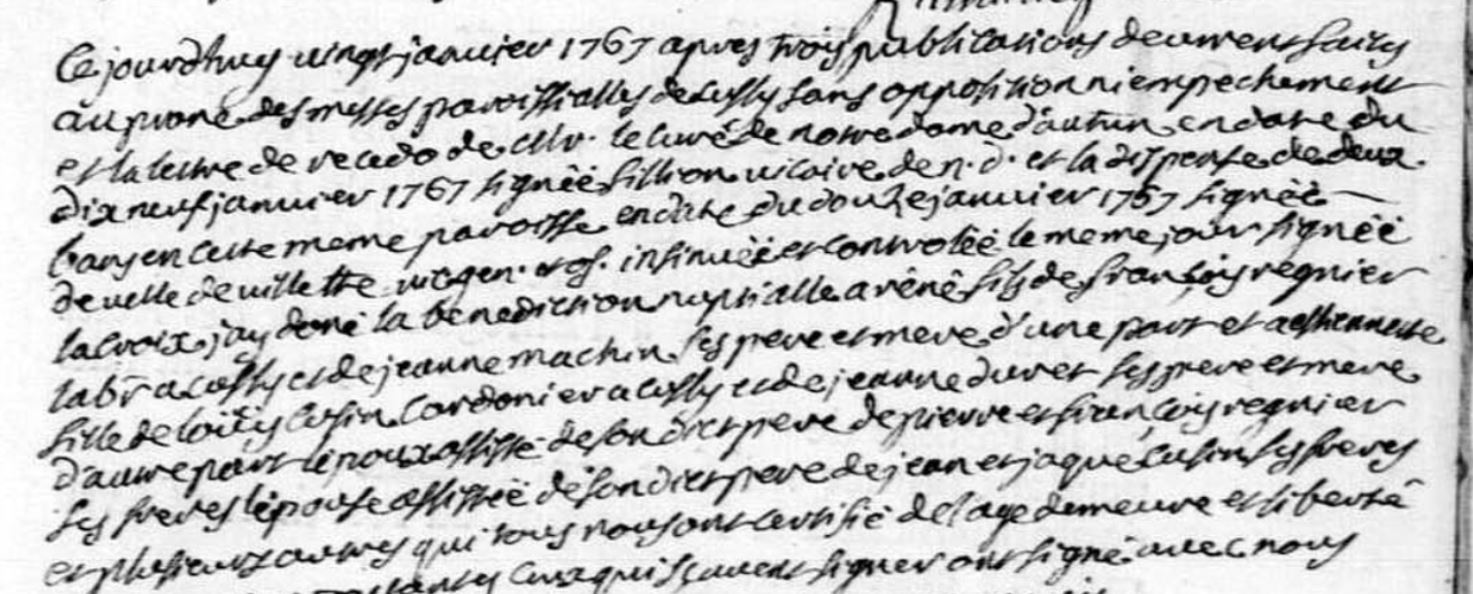 Ce jourdhuy vingt janvier 1767 apres trois publications deument faites
au prone des messes paroissialles de Cussy sans opposition ni empechement
et la lettre de recedo de Mr. le curé de notre dame d'autun en date du
dix neuf janvier 1767 signéé fillion vicaire de n. d. et la dispense de deux
bans en cette meme paroisse en date du douze janvier 1767 signéé
de velle de villette vic gen. et of. insinuéé et controléé le meme jour signéé
lacroix, jay doné la benediction nuptialle a réné fils de françois regnier
labr a Cussy et de jeanne machin ses pere et mere d'une part et a estiennette
fille de Cusin Cordonier a Cussy et de jeanne duret ses pere et mere
d'autre part lépoux assisté de son dict pere de pierre et françois regnier
ses freres lépouse assistéé de son dict pere de jean et jaque Cusin ses freres
et plusieurs autres qui tous nous ont certifié de l'age demeure et liberté
ceux qui sçavent signer ont signé avec nous